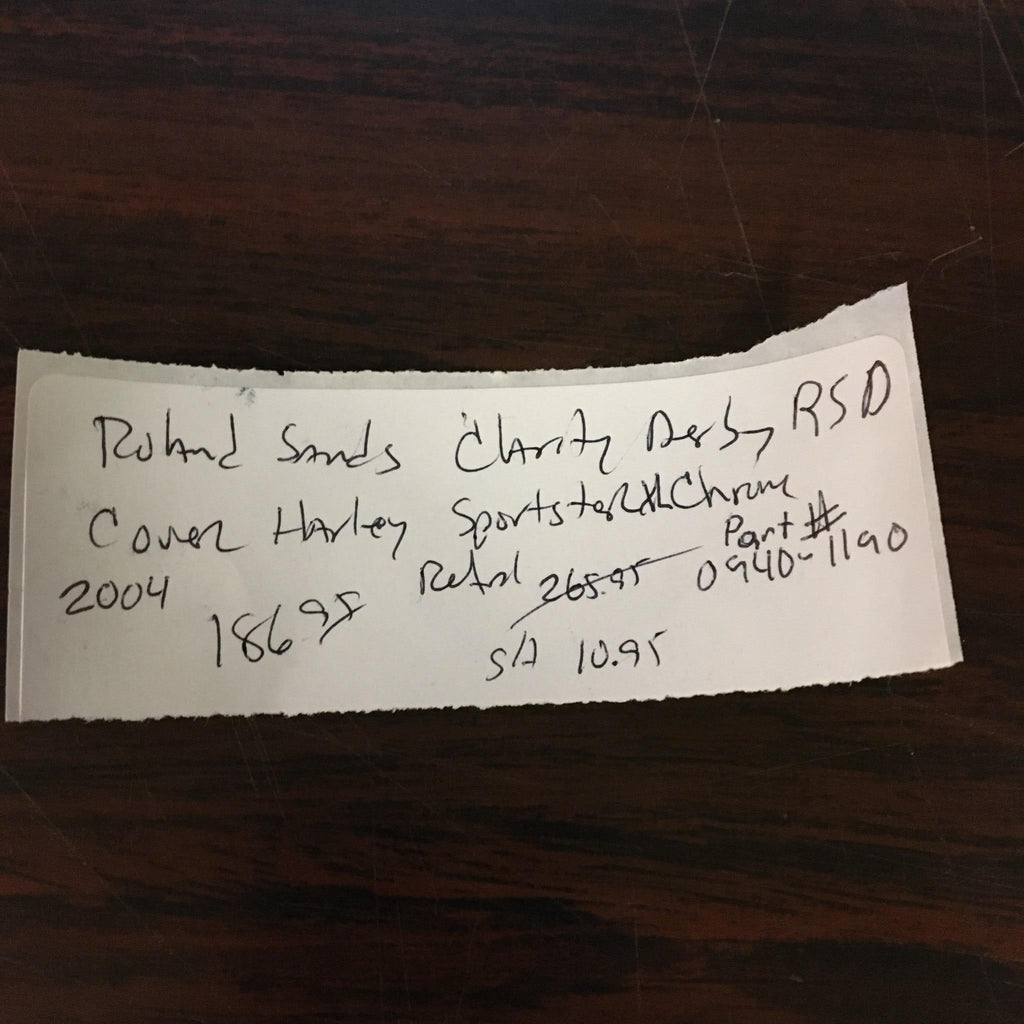 Roland Sands Clarity Derby RSD
Cover Harley Sportster XL Chrome
Part #
2004 Retail 265.95 0940-1190
186 95
S/H 10.95